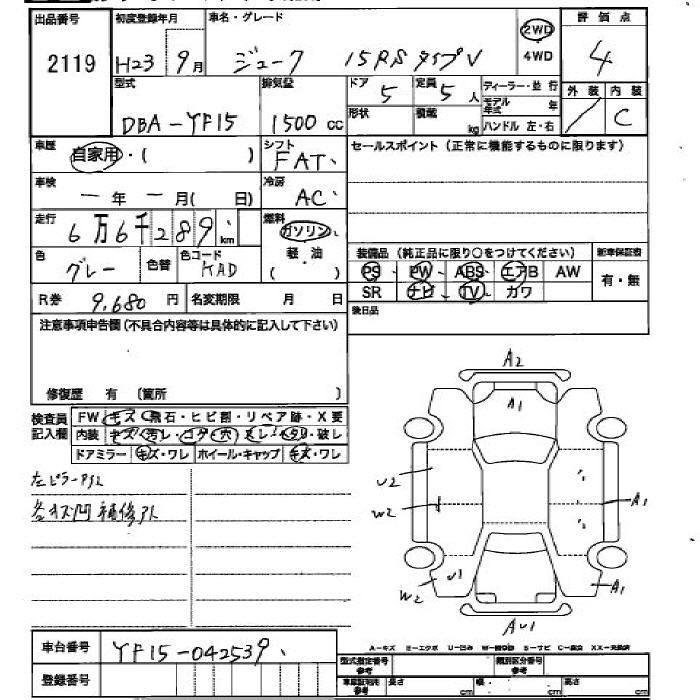 出品番号 初度登録年月 車名・グレード 2WD 評価点
2119 H23 9月 ジューク 15RS タイプV 4WD 4
型式 排気量 ドア 5 定員 5人 ディーラー・並行 外装 内装
DBA-YF15 1500cc 形状 積載 kg モデル年式 年 ハンドル 左・右 / C
車歴 自家用・( ) シフト FAT セールスポイント(正常に機能するものに限ります)
車検 ー年ー月( 日) 冷房 AC
走行 6万6千289km 燃料 ガソリン 軽・油 ( )
色 グレー 色替 色コード KAD 装備品(純正品に限り○をつけてください) 新車保証書
PS PW ABS エアB AW 有・無
R券 9,680円 名変期限 月 日 SR ナビ TV カワ
注意事項申告欄(不具合内容等は具体的に記入して下さい) 後日品
修復歴 有 〔箇所 〕
検査員記入欄 FW キズ・飛石・ヒビ割・リペア跡・X要
内装 キズ・汚レ・コゲ・穴・スレ・ヘタリ・破レ
ドアミラー キズ・ワレ ホイール・キャップ キズ・ワレ
左ピラーPタレ
各キズ凹 補修アト
A2
A1
U2
W2
A1
W2
U1
A1
AU1
A-キズ E-エクボ U-凹み W-補修跡 S-サビ C-腐食 XX-交換済
車台番号 YF15-042539
登録番号
型式指定番号 参考 類別区分番号 参考
長さ cm 幅 cm 高さ cm